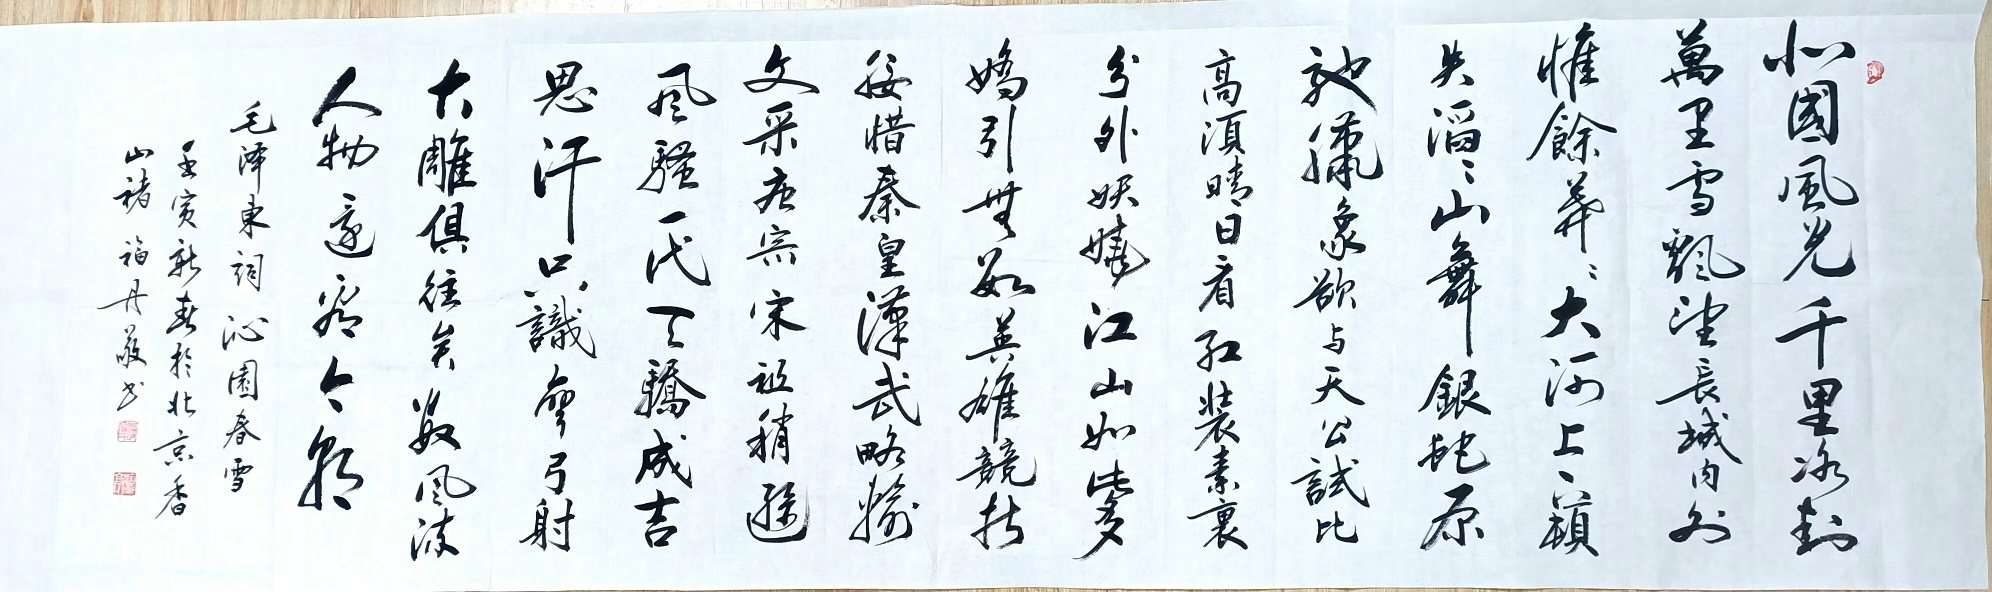 北國風光千里冰封
萬里雪飄望長城內外
惟餘莽〻大河上下頓
失滔〻山舞銀蛇原
馳臘象欲与天公試比
高須晴日看紅裝素裹
分外妖嬈江山如此多
嬌引無數英雄競折
腰惜秦皇漢武略輸
文采唐宗宋祖稍遜
风騷一代天驕成吉
思汗只識彎弓射
大雕俱往矣數风流
人物還看今朝
毛泽東詞沁園春雪
壬寅新春於北京香
山褚福丹敬书